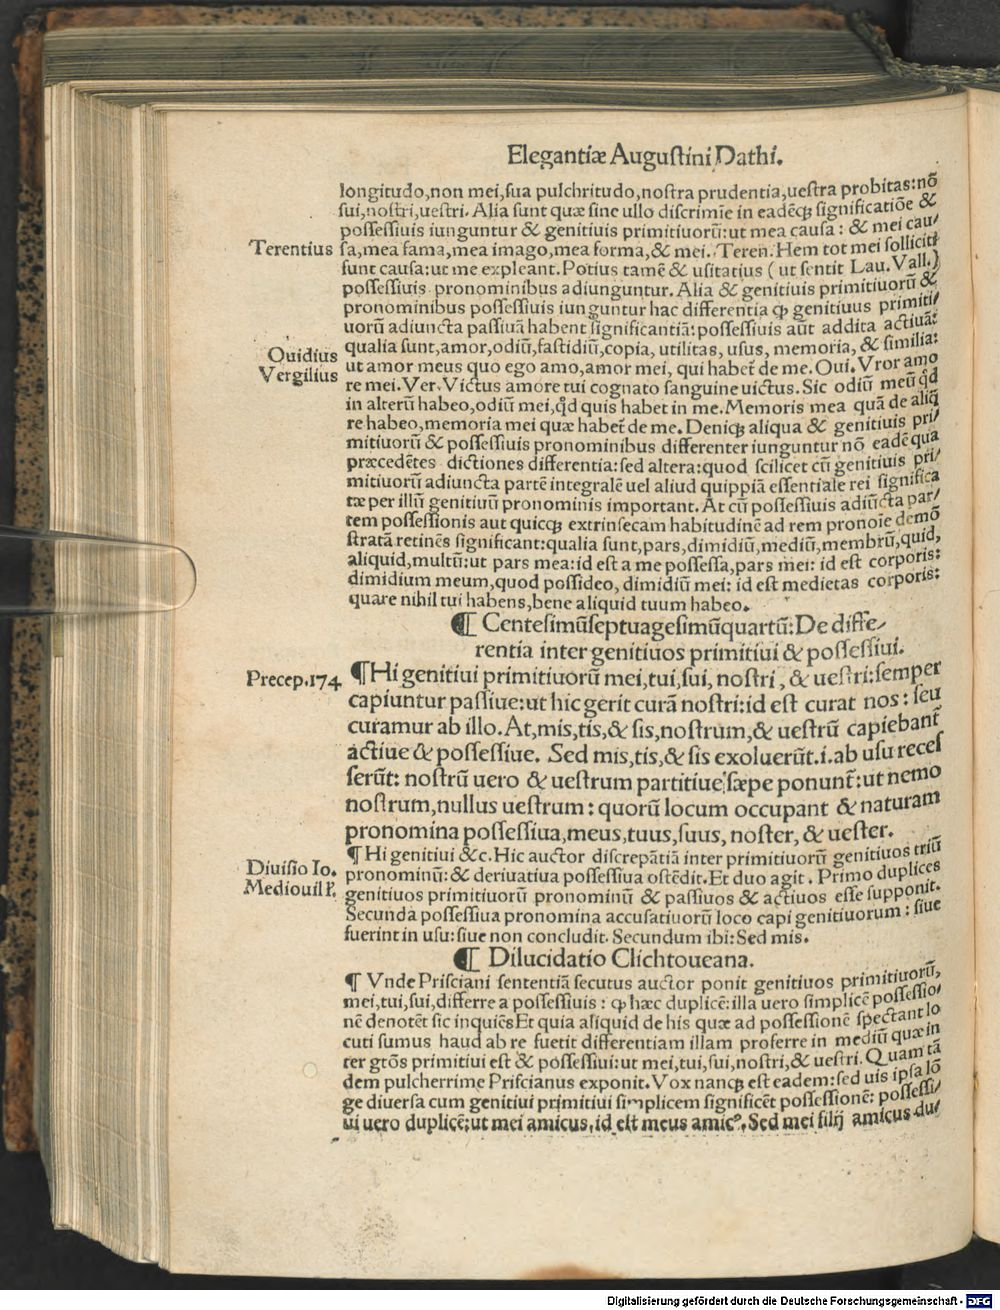 Elegantiæ Augustini Dathi.
longitudo,non mei,sua pulchritudo,nostra prudentia,uestra probitas:nõ
sui,nostri,uestri. Alia sunt quæ sine ullo discrimĩe in eadẽqȝ significatiõe &
possessiuis iunguntur & genitiuis primitiuorũ:ut mea causa : & mei cau/
Terentius
sa,mea fama,mea imago,mea forma,& mei. Teren. Hem tot mei solliciti
sunt causa:ut me expleant. Potius tamẽ & usitatius ( ut sentit Lau. Vall.)
possessiuis pronominibus adiunguntur. Alia & genitiuis primitiuorũ &
pronominibus possessiuis iunguntur hac differentia ꝙ genitiuus primiti/
uorũ adiuncta passiuã habent significantiã:possessiuis aũt addita actiuã:
Ouidius
qualia sunt,amor,odiũ,fastidiũ,copia, utilitas, usus, memoria, & similia:
Vergilius
ut amor meus quo ego amo,amor mei, qui habet̃ de me. Oui. Vror amo
re mei. Ver. Victus amore tui cognato sanguine uictus. Sic odiũ meũ qđ
in alterũ habeo,odiũ mei,qđ quis habet in me. Memoris mea quã de aliq̃
re habeo,memoria mei quæ habet̃ de me. Deniqȝ aliqua & genitiuis pri/
mitiuorũ & possessiuis pronominibus differenter iunguntur nõ eadẽ qua
præcedẽtes dictiones differentia:sed altera:quod scilicet cũ genitiuis pri/
mitiuorũ adiuncta partẽ integralẽ uel aliud quippiã essentiale rei significa
tæ per illũ genitiuũ pronominis important. At cũ possessiuis adiũcta par/
tem possessionis aut quicqȝ extrinsecam habitudinẽ ad rem pronoĩe demõ
stratã retinẽs significant:qualia sunt,pars,dimidiũ,mediũ,membrũ,quid,
aliquid,multũ:ut pars mea:id est a me possessa,pars mei: id est corporis:
dimidium meum,quod possideo, dimidiũ mei: id est medietas corporis:
quare nihil tui habens,bene aliquid tuum habeo.
¶ Centesimũseptuagesimũquartũ:De diffe/
rentia inter genitiuos primitiui & possessiui.
Precep.174
¶Hi genitiui primitiuorũ mei,tui,sui, nostri, & uestri:semper
capiuntur passiue:ut hic gerit curã nostri:id est curat nos : seu
curamur ab illo. At,mis,tis,& sis,nostrum,& uestrũ capiebant̃
actiue & possessiue. Sed mis,tis,& sis exoluerũt.i.ab usu recef
serũt: nostrũ uero & uestrum partitiue sæpe ponunt̃:ut nemo
nostrum,nullus uestrum : quorũ locum occupant & naturam
pronomina possessiua,meus,tuus,suus, noster, & uester.
Diuisio Io.
Mediouill̃.
¶Hi genitiui &c. Hic auctor discrepãtiã inter primitiuorũ genitiuos triũ
pronominũ: & deriuatiua possessiua ostẽdit. Et duo agit. Primo duplices
genitiuos primitiuorũ pronominũ & passiuos & actiuos esse supponit.
Secunda possessiua pronomina accusatiuorũ loco capi genitiuorum : siue
fuerint in usu: siue non concludit. Secundum ibi: Sed mis.
¶ Dilucidatio Clichtoueana.
¶ Vnde Prisciani sententiã secutus auctor ponit genitiuos primitiuorũ,
mei,tui,sui,differre a possessiuis : ꝙ hæc duplicẽ:illa uero simplicẽ possessio/
nẽ denotẽt sic inquiẽs Et quia aliquid de his quæ ad possessionẽ spectant lo
cuti sumus haud ab re fuetit differentiam illam proferre in mediũ quæ in
ter gtõs primitiui est & possessiui:ut mei,tui,sui,nostri,& uestri. Quam tã
dem pulcherrime Priscianus exponit. Vox nancqȝ est eadem:sed uis ipsa lõ
ge diuersa cum genitiui primitiui simplicem significẽt possessionẽ: possessi/
ui uero duplicẽ:ut mei amicus,id est meus amicꝰ. Sed mei filij amicus du/
Digitalisierung gefördert durch die Deutsche Forschungsgemeinschaft - DFG